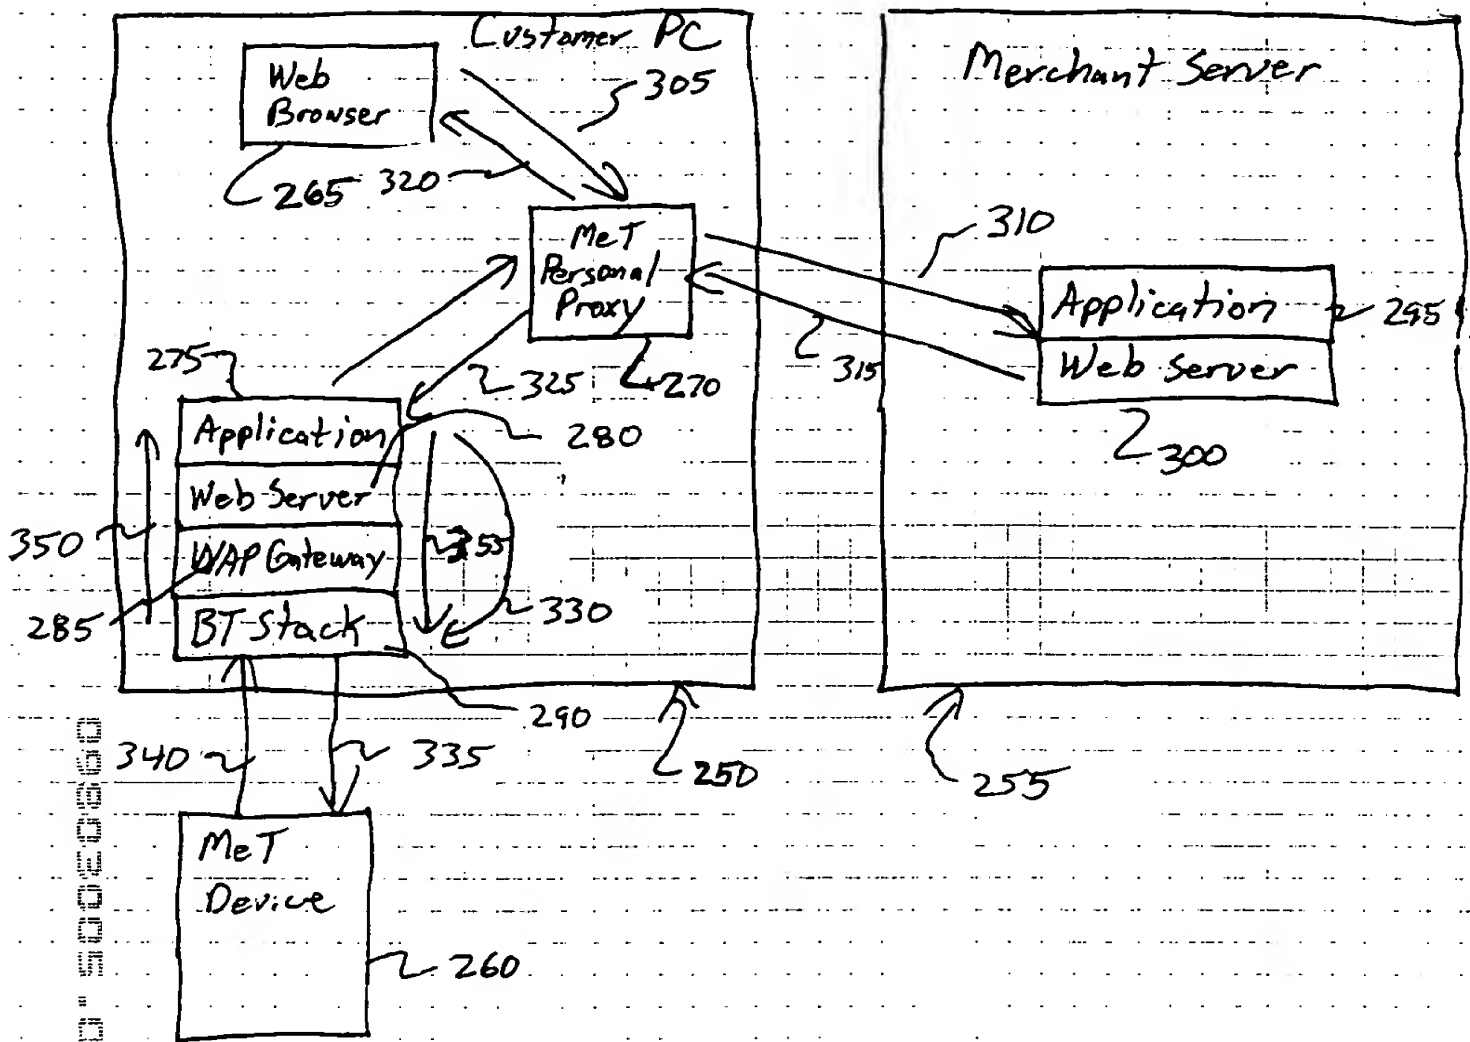 Customer PC
Merchant Server
Web
Browser
305
265
320
MeT
Personal
Proxy
310
Application
295
Web Server
315
300
275
325
270
Application
280
Web Server
350
WAP Gateway
285
BT Stack
330
290
340
335
250
255
MeT
Device
260